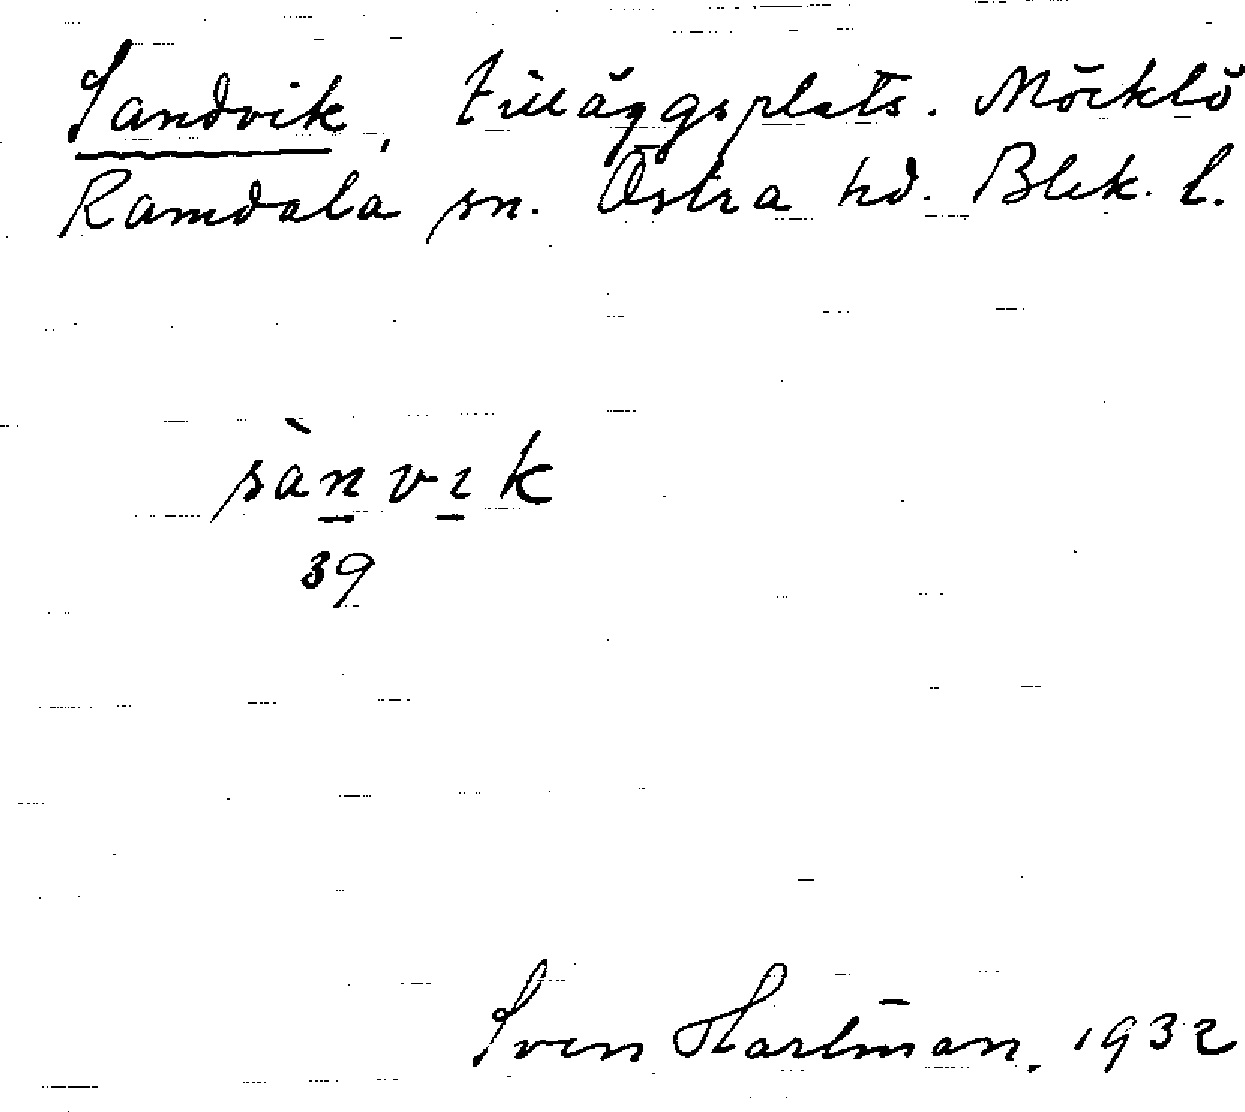 Sandvik, tilläggsplats. Möcklö
Ramdala sn. Östra hd. Blek. l.
sànvık
39
Sven Hartman. 1932